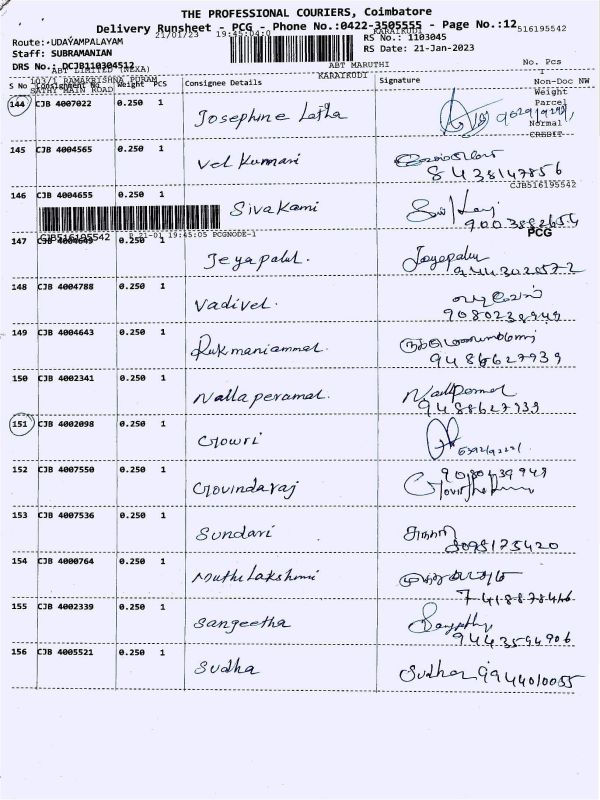 THE PROFESSIONAL COURIERS, Coimbatore
Delivery Runsheet - PCG - Phone No.:0422-3505555 - Page No.:12
516195542
21/01/23 19:45:04:0
KARAIKUDI
Route: UDAYAMPALAYAM
RS No.: 1103045
Staff: SUBRAMANIAN
RS Date: 21-Jan-2023
DRS No.: DCJB110304512
ABT LIMITED (NEXA)
ABT MARUTHI
KARAIKUDI
No. Pcs
1
103/1 RAMAKRISHNA PURAM
SATHY MAIN ROAD
S No Consignment No Weight PCS Consignee Details Signature
Non-Doc NW
Weight
Parcel
Normal
CREDIT
144 CJB 4007022 0.250 1 Josephine Latha
145 CJB 4004565 0.250 1 Vel Kumari
8438147856
CJB516195542
146 CJB 4004655 0.250 1 Sivakami
9003882654
CJB516195542 R 21-01 19:45:05 PCGNODE-1
PCG
147 CJB 4004649 0.250 1 Jeyapalul. Jayapalu
9443020572
148 CJB 4004788 0.250 1 Vadivel. வடிவேல்
9080239949
149 CJB 4004643 0.250 1 Rukmaniammal.
9486627939
150 CJB 4002341 0.250 1 Nallaperumal.
9488627939
151 CJB 4002098 0.250 1 Gowri
152 CJB 4007550 0.250 1 Govindaraj
9080439949
153 CJB 4007536 0.250 1 Sundari
8098175420
154 CJB 4000764 0.250 1 Muthi Lakshmi
7418878416
155 CJB 4002339 0.250 1 Sangeetha
9443594906
156 CJB 4005521 0.250 1 Sudha Sudha 9944010055